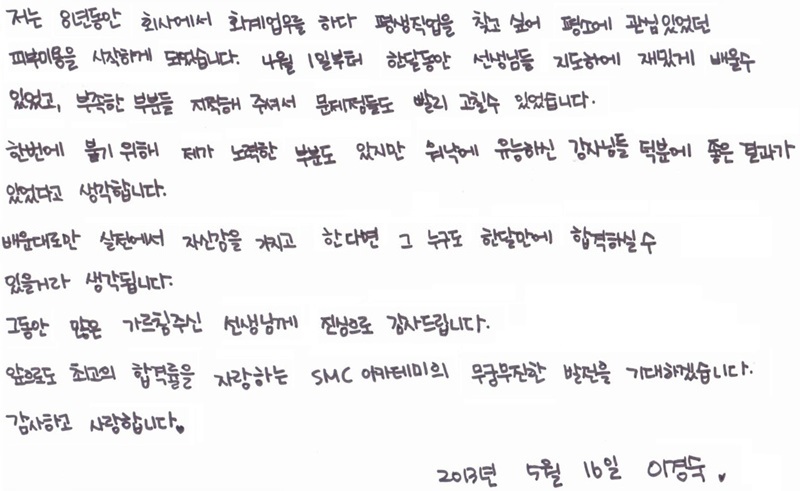 저는 8년동안 회사에서 회계업무를 하다 평생직업을 찾고 싶어 평소에 관심있었던
피부미용을 시작하게 되었습니다. 4월 1일부터 한달동안 선생님들 지도하에 재밌게 배울수
있었고, 부족한 부분들 지적해 주셔서 문제점들도 빨리 고칠수 있었습니다.
한번에 붙기 위해 제가 노력한 부분도 있지만 워낙에 유능하신 강사님들 덕분에 좋은 결과가
있었다고 생각합니다.
배운대로만 실전에서 자신감을 가지고 한다면 그 누구도 한달만에 합격하실수
있을거라 생각됩니다.
그동안 많은 가르침주신 선생님께 진심으로 감사드립니다.
앞으로도 최고의 합격률을 자랑하는 SMC 아카데미의 무궁무진한 발전을 기대하겠습니다.
감사하고 사랑합니다♥
2013년 5월 16일 이경숙 ♥